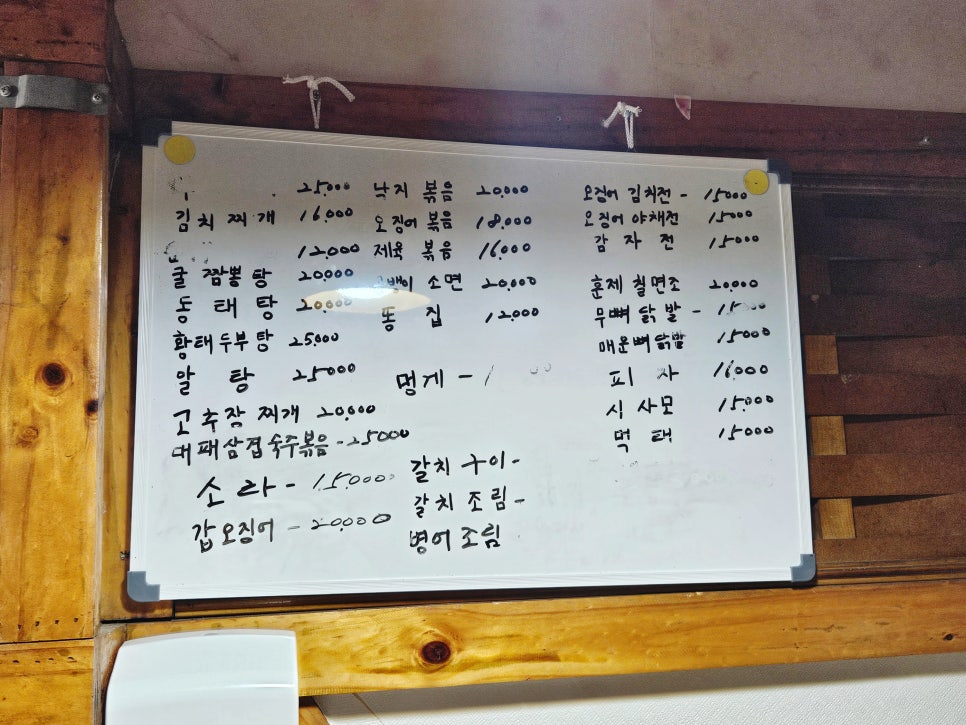 25000
김치찌개 16,000
12,000
굴 짬뽕탕 20000
동태탕 20,000
황태두부탕 25,000
알탕 25000
고추장찌개 20,000
대패삼겹숙주볶음 - 25000
소라 - 15,000
갑오징어 - 20,000
낙지 볶음 20,000
오징어 볶음 18,000
제육 볶음 16,000
소면 20,000
똥집 12,000
멍게 -
갈치구이 -
갈치조림 -
병어조림
오징어 김치전 - 15000
오징어 야채전 15000
감자전 15000
훈제 칠면조 20,000
무뼈닭발 -
매운뼈닭발 15000
피자 16000
시사모 15,000
먹태 15000